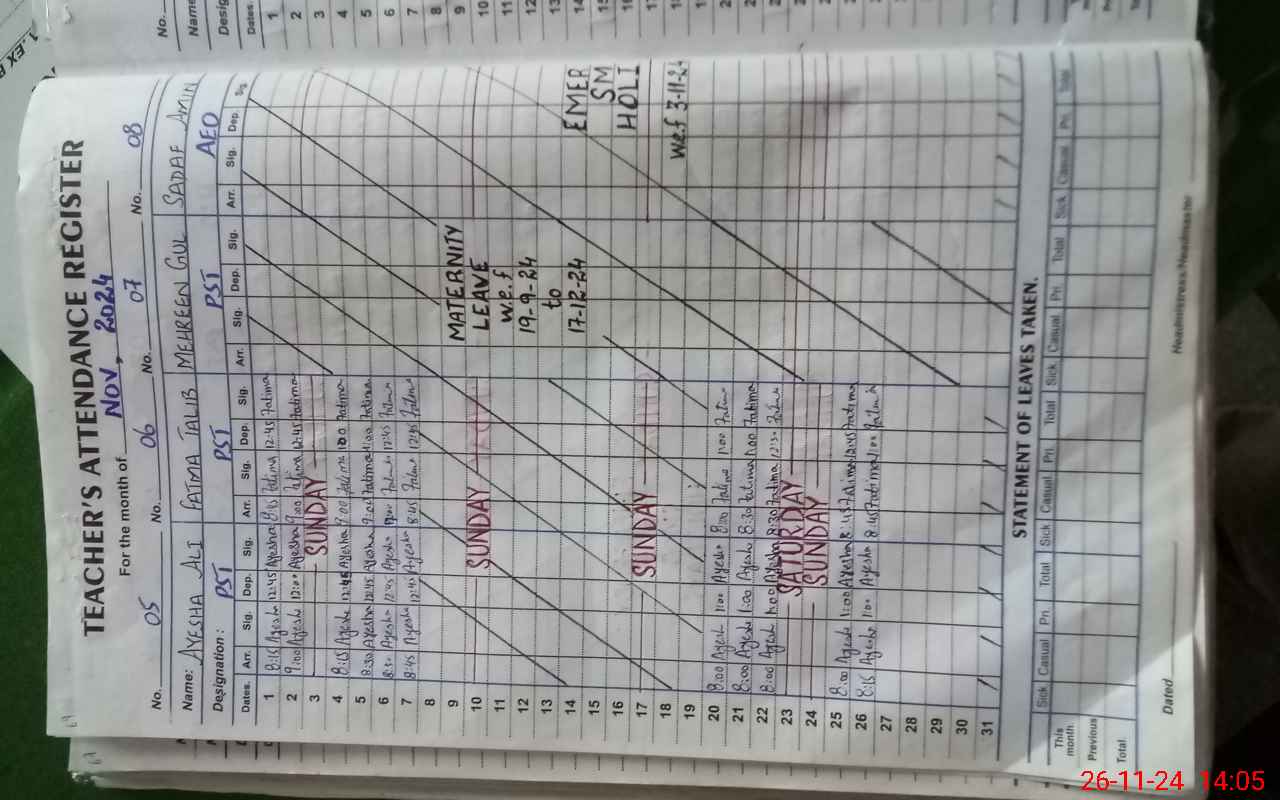 TEACHER'S ATTENDANCE REGISTER
For the month of Nov, 2024
No. 05 No. 06 No. 07 No. 08
Name: AYESHA ALI FATMA TALIB MEHREEN GUL SADAF AMIN
Designation: PST PST PST AEO
Dates. Arr. Sig. Dep. Sig. Arr. Sig. Dep. Sig. Arr. Sig. Dep. Sig. Arr. Sig. Dep. Sig
1 8:15 Ayesha 12:45 Ayesha 8:15 Fatima 12:45 Fatima
2 9:00 Ayesha 12:00 Ayesha 9:00 Fatima 12:45 Fatima
3 SUNDAY
4 8:15 Ayesha 12:45 Ayesha 9:00 Fatima 1:00 Fatima
5 8:30 Ayesha 12:45 Ayesha 9:00 Fatima 1:00 Fatima
6 8:30 Ayesha 12:45 Ayesha Fatima 12:45 Fatima
7 8:45 Ayesha 12:45 Ayesha 8:45 Fatima 12:45 Fatima
8
9 MATERNITY
10 SUNDAY LEAVE
11 w.e.f
12 19-9-24
13 to
14 17-12-24 EMER
15 SM
16 HOLI
17 SUNDAY
18 w.e.f 3-11-24
19
20 8:00 Ayesha 1:00 Ayesha 8:00 Fatima 1:00 Fatima
21 8:00 Ayesha 1:00 Ayesha 8:30 Fatima 1:00 Fatima
22 8:00 Ayesha 1:00 Ayesha 8:30 Fatima 12:30 Fatima
23 SATURDAY
24 SUNDAY
25 8:00 Ayesha 1:00 Ayesha 8:45 Fatima 12:45 Fatima
26 8:15 Ayesha 1:00 Ayesha 8:45 Fatima 1:00 Fatima
27
28
29
30
31
STATEMENT OF LEAVES TAKEN.
Sick Casual Pri Total Sick Casual Pri. Total Sick Casual Pri. Total Sick Casual Pri. Total
This month
Previous
Total.
Dated Headmistress/Headmaster
26-11-24 14:05